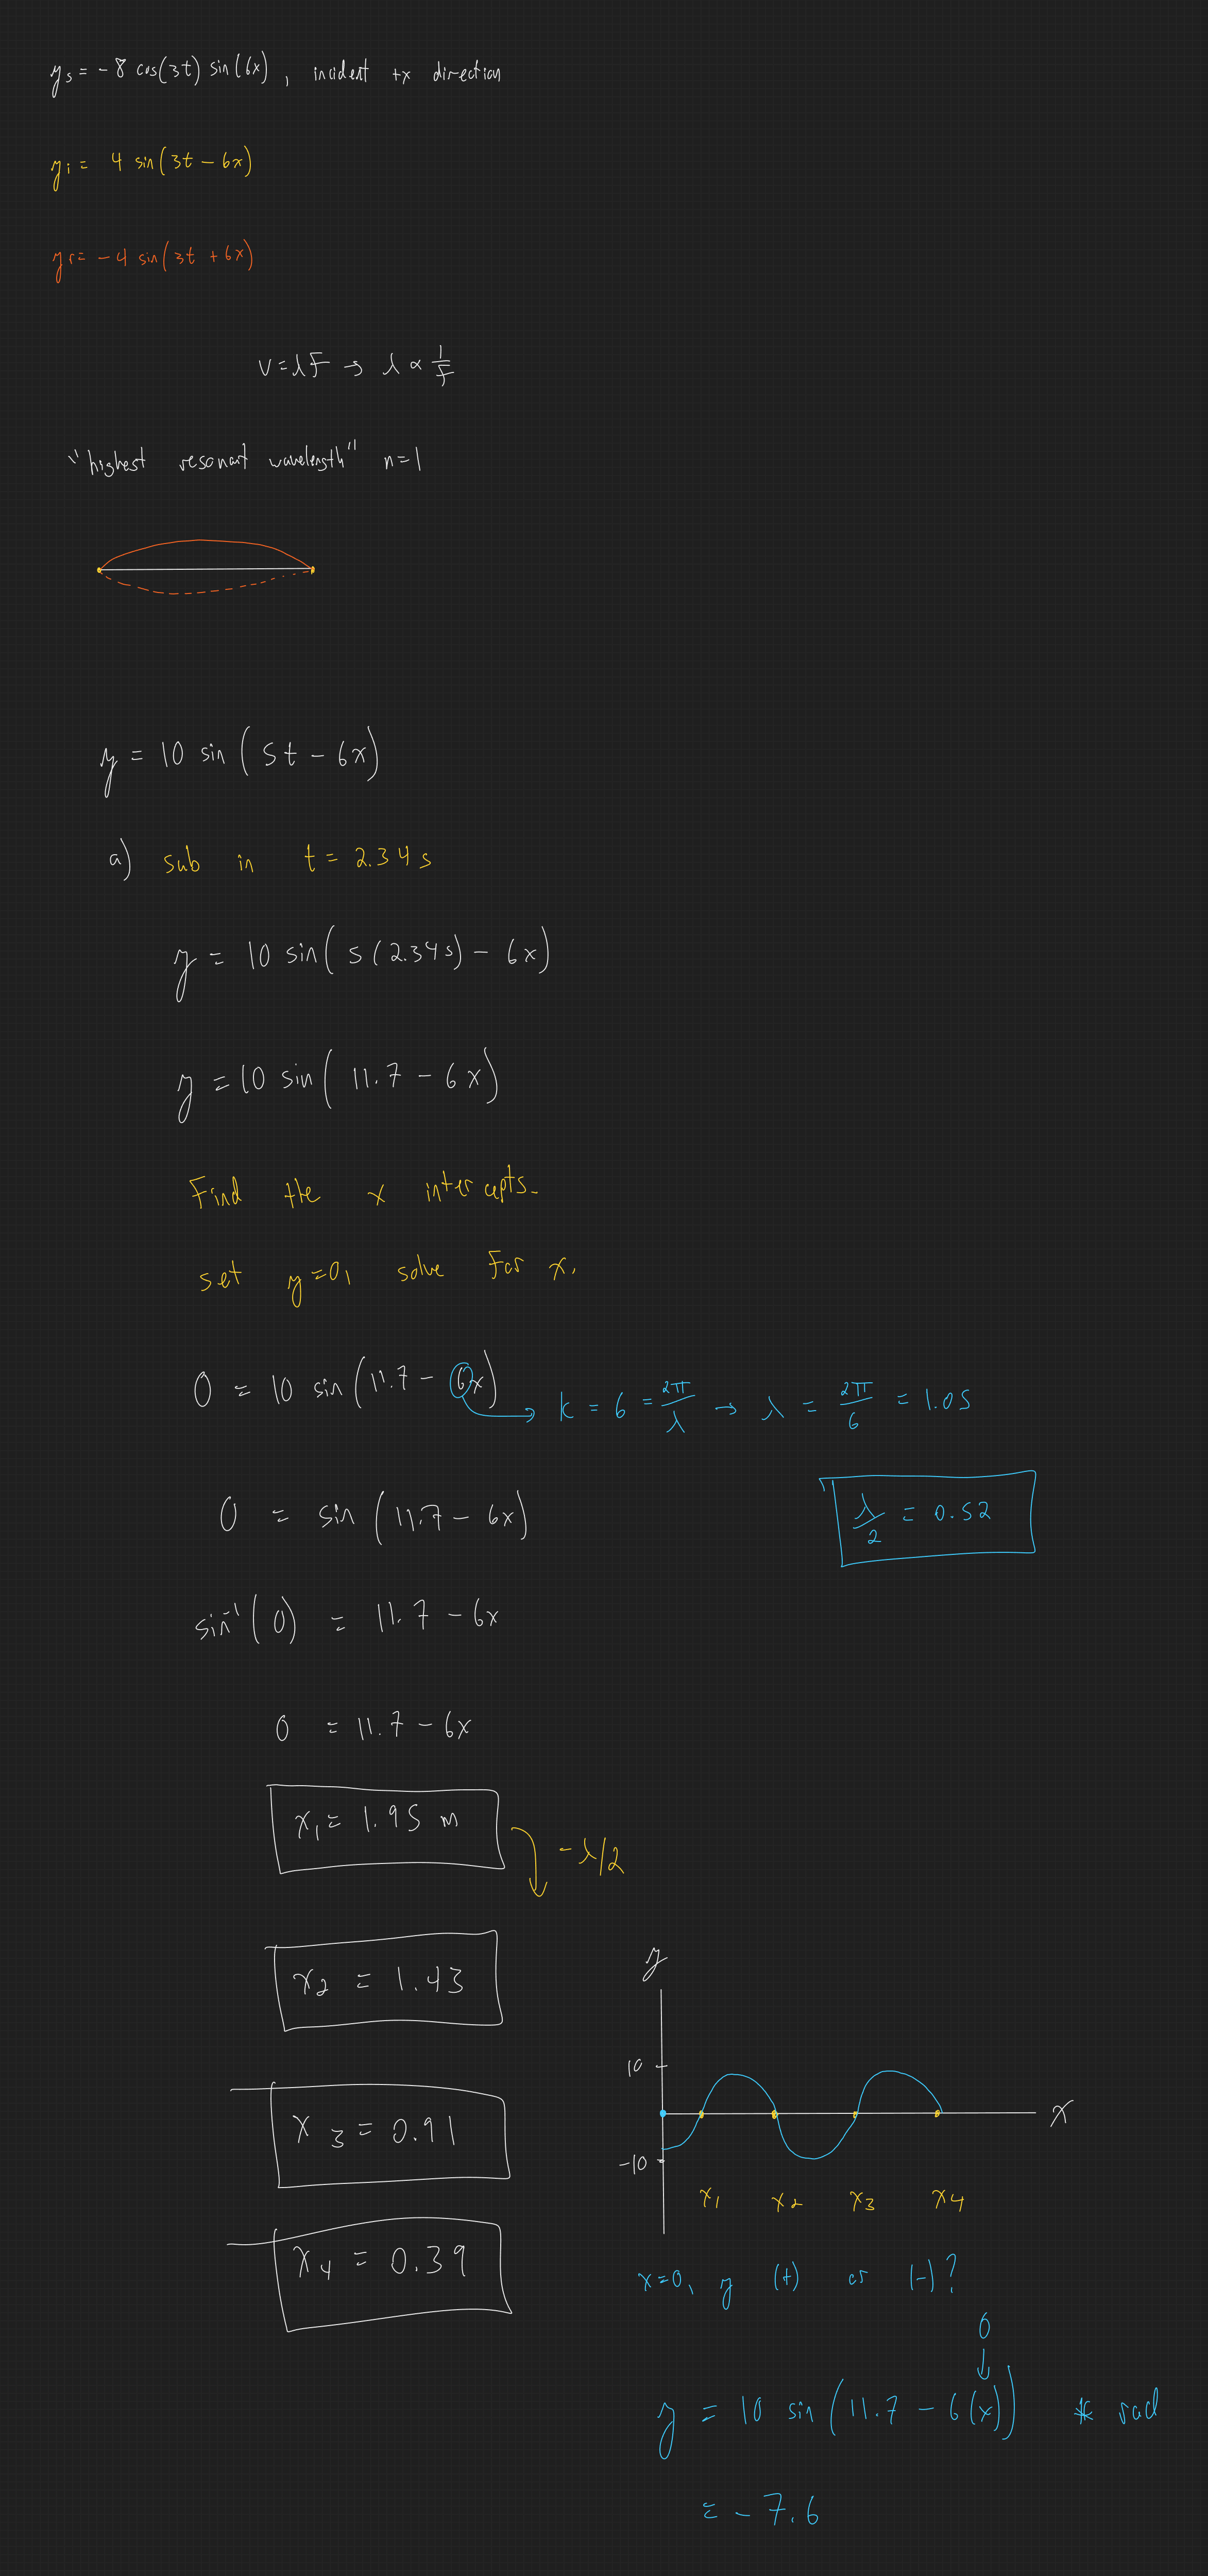 y_s = -8 cos(3t) sin(6x), incident +x direction
y_i = 4 sin(3t - 6x)
y_r = -4 sin(3t + 6x)
v = λf → λ ∝ 1/f
"highest resonant wavelength" n=1
y = 10 sin(5t - 6x)
a) sub in t = 2.34 s
y = 10 sin(5(2.34s) - 6x)
y = 10 sin(11.7 - 6x)
Find the x intercepts.
set y=0, solve for x.
0 = 10 sin(11.7 - 6x) → k = 6 = 2π/λ → λ = 2π/6 = 1.05
0 = sin(11.7 - 6x)
λ/2 = 0.52
sin⁻¹(0) = 11.7 - 6x
0 = 11.7 - 6x
x₁ = 1.95 m
-λ/2
x₂ = 1.43
x₃ = 0.91
x₄ = 0.39
y
10
x
-10
x₁ x₂ x₃ x₄
x=0, y (+) or (-)?
0
↓
y = 10 sin(11.7 - 6(x)) * rad
= -7.6